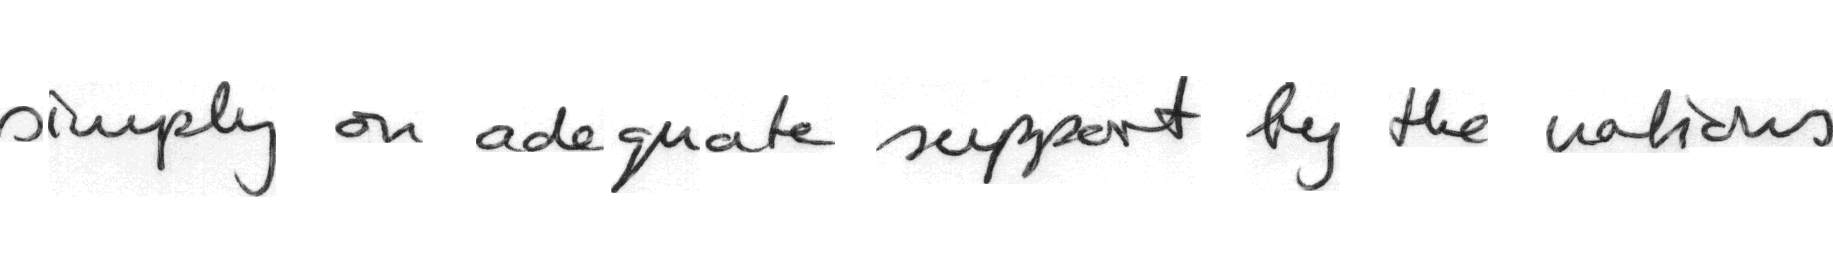 simply on adequate support by the nations